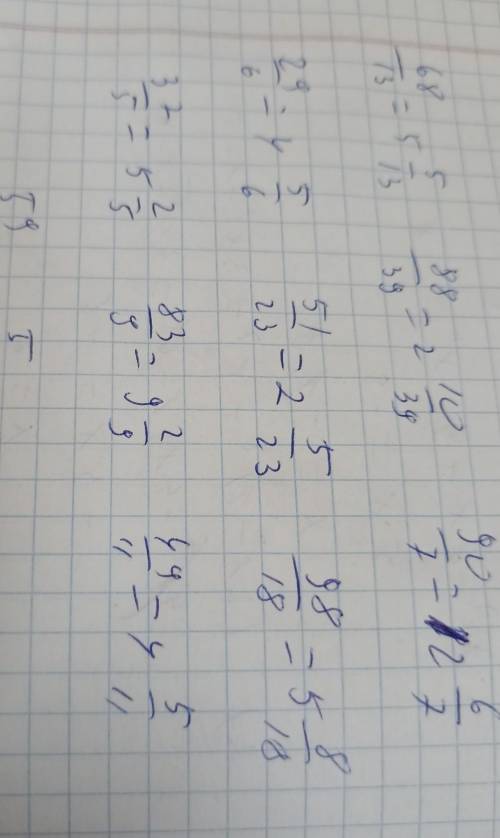 68/13 = 5 5/13 88/39 = 2 10/39 90/7 = 12 6/7
29/6 = 4 5/6 51/23 = 2 5/23 98/18 = 5 8/18
37/5 = 5 2/5 83/9 = 9 2/9 49/11 = 4 5/11